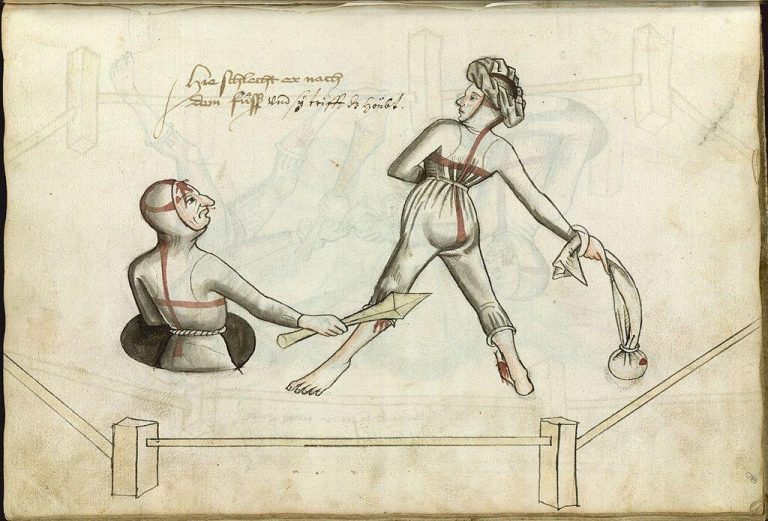 Hie schlecht er nach
dem fuss und sy trifft dz houbt.